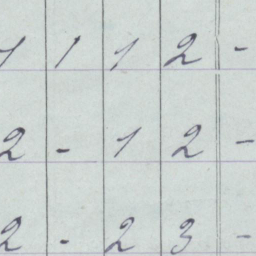 1 1 1 2 -
2 - 1 2 -
2 - 2 3 -